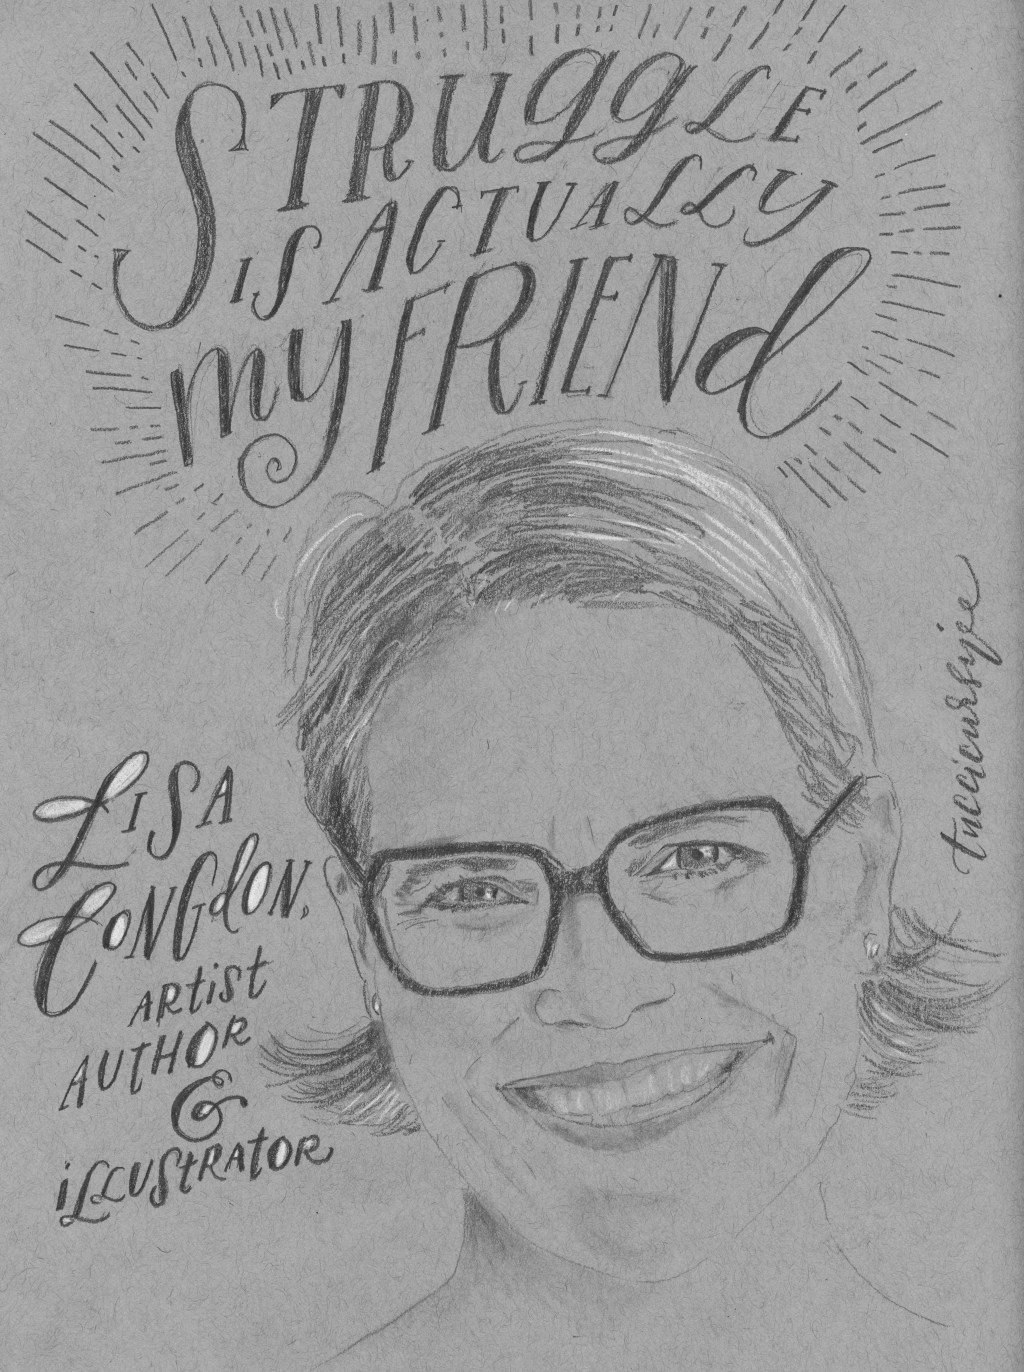 STRUggLE
IS ACTUALLY
my FRIENd
LISA
CONGdON,
ARtist
AUtHOR
&
iLLUStRAtOR
tuccicursive